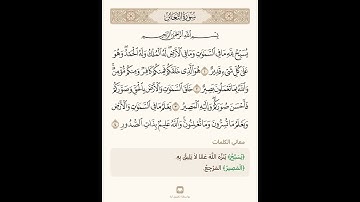 سُورَةُ التَّغَابُنِ
بِسْمِ اللَّهِ الرَّحْمَٰنِ الرَّحِيمِ
يُسَبِّحُ لِلَّهِ مَا فِي السَّمَاوَاتِ وَمَا فِي الْأَرْضِ لَهُ الْمُلْكُ وَلَهُ الْحَمْدُ وَهُوَ
عَلَىٰ كُلِّ شَيْءٍ قَدِيرٌ ١ هُوَ الَّذِي خَلَقَكُمْ فَمِنكُمْ كَافِرٌ وَمِنكُم مُّؤْمِنٌ
وَاللَّهُ بِمَا تَعْمَلُونَ بَصِيرٌ ٢ خَلَقَ السَّمَاوَاتِ وَالْأَرْضَ بِالْحَقِّ وَصَوَّرَكُمْ
فَأَحْسَنَ صُوَرَكُمْ وَإِلَيْهِ الْمَصِيرُ ٣ يَعْلَمُ مَا فِي السَّمَاوَاتِ وَالْأَرْضِ
وَيَعْلَمُ مَا تُسِرُّونَ وَمَا تُعْلِنُونَ وَاللَّهُ عَلِيمٌ بِذَاتِ الصُّدُورِ ٤
معاني الكلمات
﴿يُسَبِّحُ﴾ يُنَزِّهُ اللَّهَ عَمَّا لَا يَلِيقُ بِهِ
﴿الْمَصِيرُ﴾ الْمَرْجِعُ